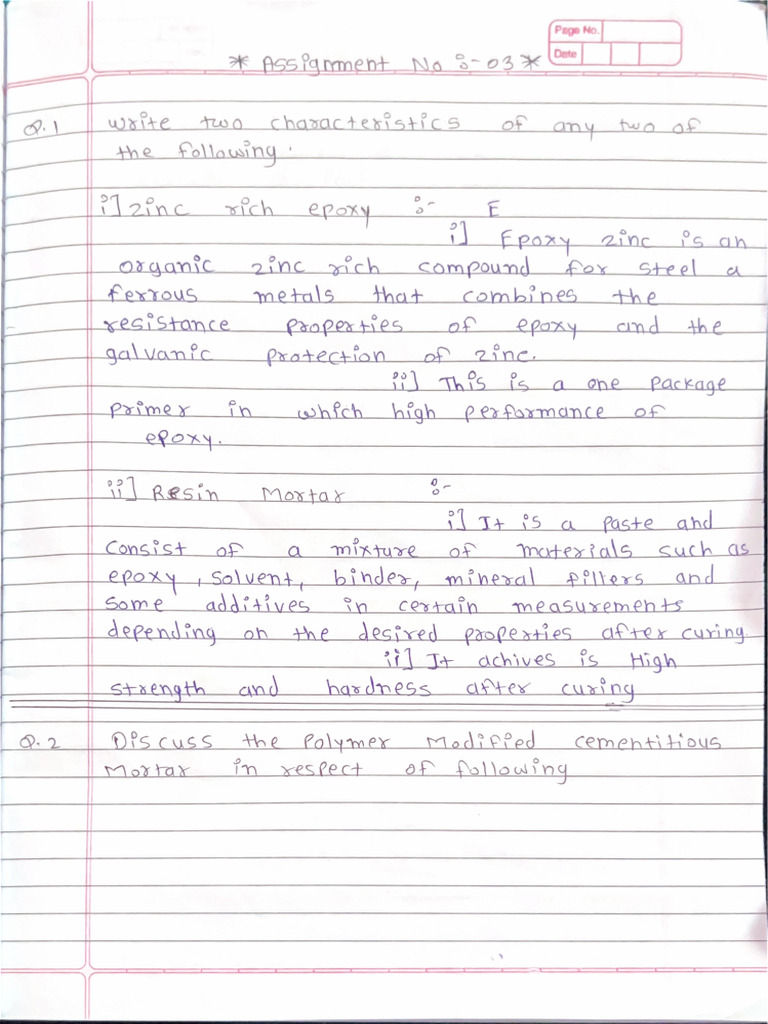 Page No.
Date
* Assignment No :- 03 *
Q.1 Write two characteristics of any two of
the following.
i] Zinc rich epoxy :- E
i] Epoxy zinc is an
organic zinc rich compound for steel a
ferrous metals that combines the
resistance properties of epoxy and the
galvanic protection of zinc.
ii] This is a one package
primer in which high performance of
epoxy.
ii] Resin Mortar :-
i] It is a paste and
consist of a mixture of materials such as
epoxy, solvent, binder, mineral fillers and
some additives in certain measurements
depending on the desired properties after curing.
ii] It achives is High
strength and hardness after curing
Q.2 Discuss the Polymer Modified cementitious
Mortar in respect of following